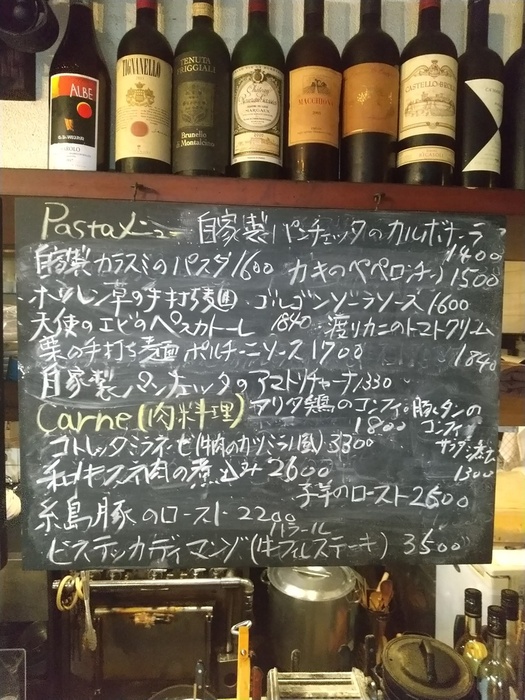 ALBE
TIGNANELLO
TENUTA
FRIGGIALI
Brunello
di Montalcino
MACCHIONE
CASTELLO
Pastaメニュー 自家製パンチェッタのカルボナーラ
1400
自家製カラスミのパスタ1600 カキのペペロンチーノ1500
ホウレン草の手打ち麺 ゴルゴンゾーラソース1600
天使のエビのペスカトーレ 1840 渡りカニのトマトクリーム
1840
栗の手打ち麺 ポルチーニソース1700
自家製パンチェッタのアマトリチャーナ1330
Carne(肉料理) アリタ鶏のコンフィ 1800
豚タンのコンフィ
サラダ添え
1300
コトレッタミラネーゼ(牛肉のカツミラノ風)3300
和牛スネ肉の煮込み 2600
子羊のロースト2600
糸島豚のロースト2200
ハラール
ビステッカディマンゾ(牛フィレステーキ) 3500